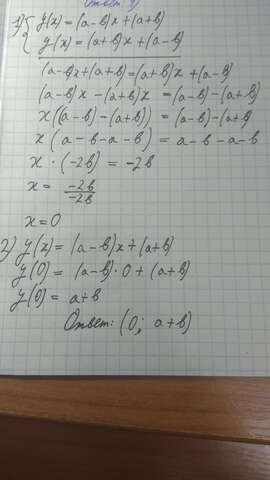 1) { y(x) = (a-b)x + (a+b)
y(x) = (a+b)x + (a-b)
(a-b)x + (a+b) = (a+b)x + (a-b)
(a-b)x - (a+b)x = (a-b) - (a+b)
x((a-b) - (a+b)) = (a-b) - (a+b)
x(a-b-a-b) = a-b-a-b
x · (-2b) = -2b
x = -2b/-2b
x = 0
2) y(x) = (a-b)x + (a+b)
y(0) = (a-b)·0 + (a+b)
y(0) = a+b
Ответ: (0; a+b)